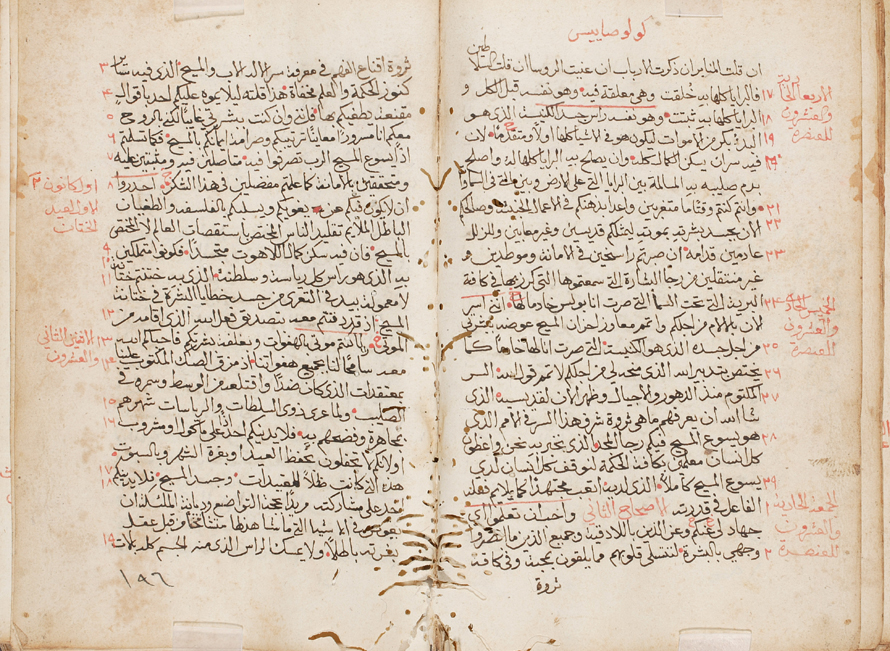 كولوصايس
ان قلت المنابر ان ذكرت الارباب ان عنيت الروسا ان قلت السلاطين
١٧ فالبرايا كلها به خلقت وهي معلقة فيه وهو نفسه قبل الكل و
١٨ البرايا كلها به ثبتت وهو نفسه راس جسد الكنيسة الذي هو
١٩ البدء بكر من الاموات ليكون هو في الاشيا كلها اولا ومتقدما لان
فيه سر ان يسكن الكمال كله وان يصلح به البرايا كلها له واصلح
بدم صليبه به المسالمة بين البرايا التي على الارض وبين التي في السموات
٢١ وانتم كنتم وقتا ما متغربين واعدا بذهنكم في الاعمال الخبيثة وصالحكم
٢٢ الان بجسد بشرته بموته ليمثلكم قديسين وغير معابين ولا زلل
٢٣ عادمين قدامه ان صبرتم راسخين في الامانة وموطدين و
غير منتقلين من رجا البشارة التي سمعتموها التي كرز بها في كافة
٢٤ البرية التي تحت السما التي صرت انا بولس خادما لها انني اسر
الان بالالام من اجلكم واتمم معاوز احزان المسيح عوضه ببشرتي
٢٥ من اجل جسده الذي هو الكنيسة التي صرت انا لها خادما كما
٢٦ يختص بتدبير الله الذي منحه لي من اجلكم لاتمم قول الله السر
٢٧ المكتوم منذ الدهور والاجيال وظهر الان لقديسيه الذي
شا الله ان يعرفهم ما هي ثروة شرف هذا السر في الامم الذي
٢٨ هو يسوع المسيح فيكم رجا المجد الذي نخبر به نحن في اعظ
كل انسان معلمين بكافة الحكمة لنوقف كل انسان لدى
٢٩ يسوع المسيح كاملا الذي لديه اتعب مجتهدا كما يلايم فعله
١ الفاعل في قدرته الاصحاح الثاني واحب ان تعلموا اي
جهاد لي عنكم وعن الذين باللادقية وجميع الذين ما ابصروا
٢ وجهي بالبشرة لتتسلى قلوبهم مما يلفون بمحبة وفي كافة
ثروة
الاربعا الحادية
والعشرون
للعنصرة
الخميس الحاد
والعشرون
للعنصرة
الجمعة الحادية
والعشرون
للعنصرة
٣ ثروة اقناع الفهم في معرفة سر الاله الاب والمسيح الذي فيه ساير
٤ كنوز الحكمة والعلم مخفاة هذا قلته ليلا يموه عليكم احد باقواله
٥ مقنعة نطقيكم بها فانني وان كنت ببشرتي غايبا لكنه بالروح
٦ معكم انا مسرورا معاينا ترتيبكم وصرامة ايمانكم بالمسيح فكما تسلمتم
٧ اذا يسوع المسيح الرب تصرفوا فيه متاصلين فيه ومبتنين عليه
٨ ومتحققين بالامانة كما علمتم مفضلين في هذا الشكر احذروا
ان لا يكون فيكم من يغويكم ويسبيكم بالفلسفه والطغيان
الباطل الملايم تقليد الناس المختص باستقصات العالم لا المختص
٩ بالمسيح فان فيه سكن كمال اللاهوت متجسدا فكونوا ممتلكين
١١ به الذي هو راس كل رياسة وسلطنة الذي به ختنتم ختانة
لا معمولة بيد في التعري من جسد خطايا البشرة في ختانة
١٢ المسيح اذ قد دفنتم معه بتصديق فعل الله الذي اقامه من
١٣ الموتى واذا انتم موتى بالهفوات وبغلفة بشرتكم فاحياكم الله
١٤ معه سامحا لنا بجميع هفواتنا اذ مزق الصك المكتوب علينا
بمعتقدات الذي كان ضدنا واقتلعه من الوسط وسمره في
١٥ الصليب ولما عرى ذوي السلطات والرياسات شهرهم
١٦ بمجاهرة وفضحهم به فلا يدينكم احد على ماكول او مشروب
اولانكم ما تحفلون بحفظ العيد او بغرة الشهر وبالسبوت
١٧ هذه التي كانت ظلا للمعتيدات وجسد المسيح فلا يدينكم
١٨ احد على مشاركته مريدا عنجة التواضع وديانة الملئكة ان
يغوص في الاشيا التي ما شاهدها منتفخا من قبل عقل
١٩ بشرته باطلا ولا يمسك الراس الذي منه الجسم كله بلات
١٩٦
اول كانون ٢
الاول العيد
الختان
الاثنين الثاني
والعشرون